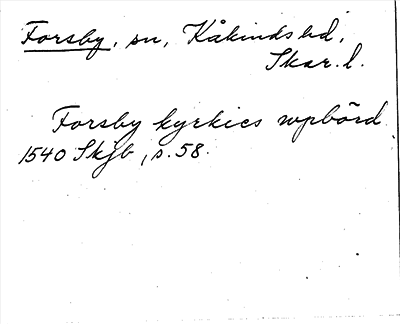 Forsby, sn, Kåkinds hd,
Skar. l.
Forsby kyrkies wpbörd
1540 Skjb, s. 58.